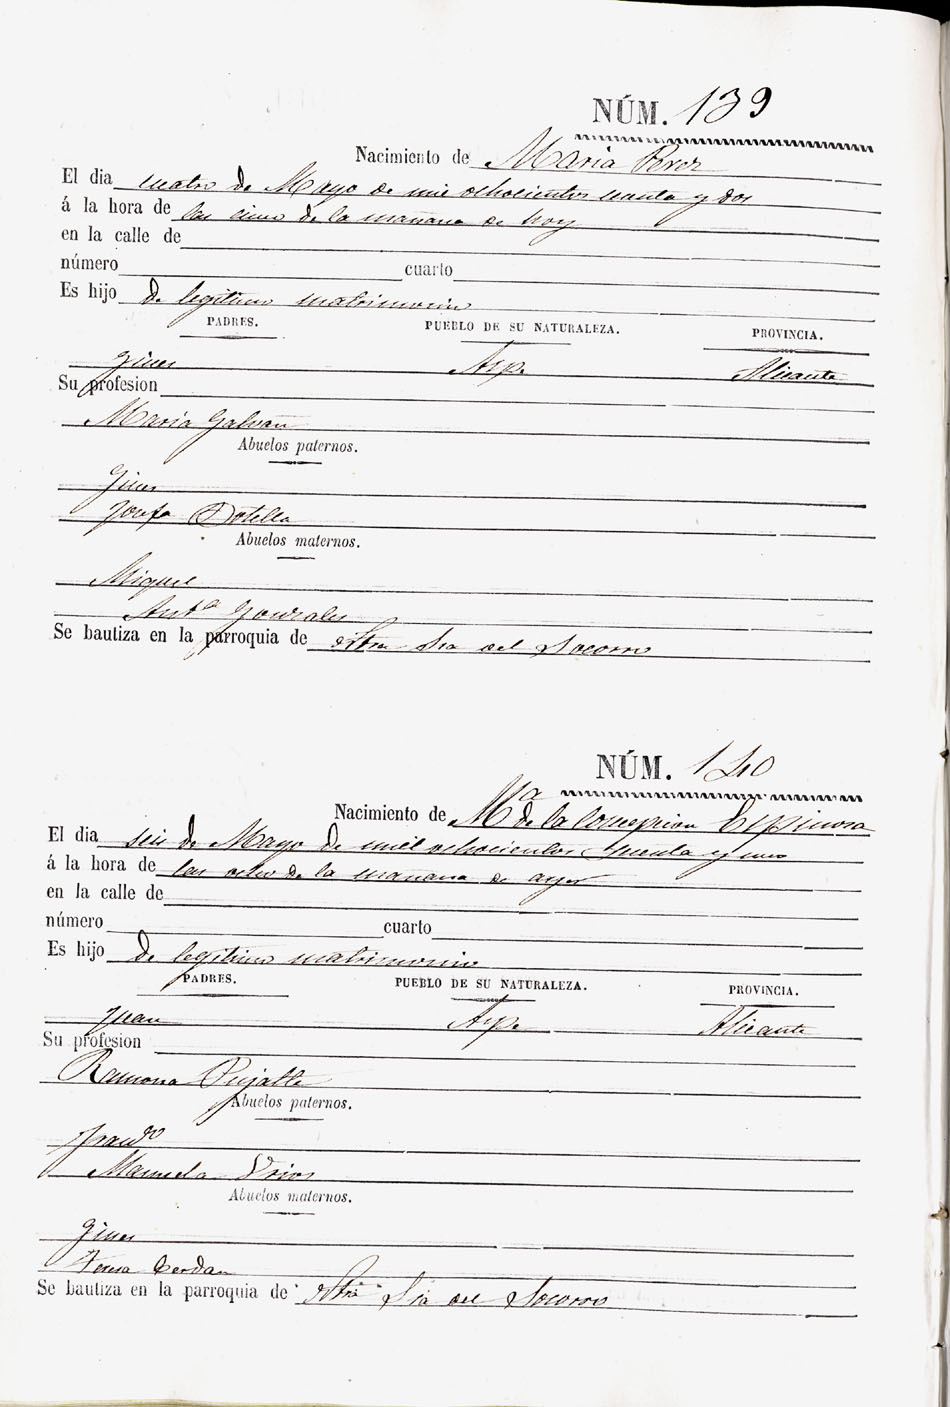 NÚM. 139
Nacimiento de Maria Perez
El dia cuatro de Mayo de mil ochocientos y dos
á la hora de las cinco de la mañana de hoy
en la calle de
número cuarto
Es hijo de legitimo matrimonio
PADRES. PUEBLO DE SU NATURALEZA. PROVINCIA.
Gines Aspe Alicante
Su profesion
Maria Galvañ
Abuelos paternos.
Gines
Josefa Botella
Abuelos maternos.
Miguel
Antª Gonzales
Se bautiza en la parroquia de Ntra Sra del Socorro
NÚM. 140
Nacimiento de Mª de la Concepcion Espinosa
El dia seis de Mayo de mil ochocientos y uno
á la hora de las ocho de la mañana de ayer
en la calle de
número cuarto
Es hijo de legitimo matrimonio
PADRES. PUEBLO DE SU NATURALEZA. PROVINCIA.
Juan Aspe Alicante
Su profesion
Ramona Pujalte
Abuelos paternos.
Francº
Manuela Urios
Abuelos maternos.
Gines
Teresa Cerdan
Se bautiza en la parroquia de Ntra Sra del Socorro